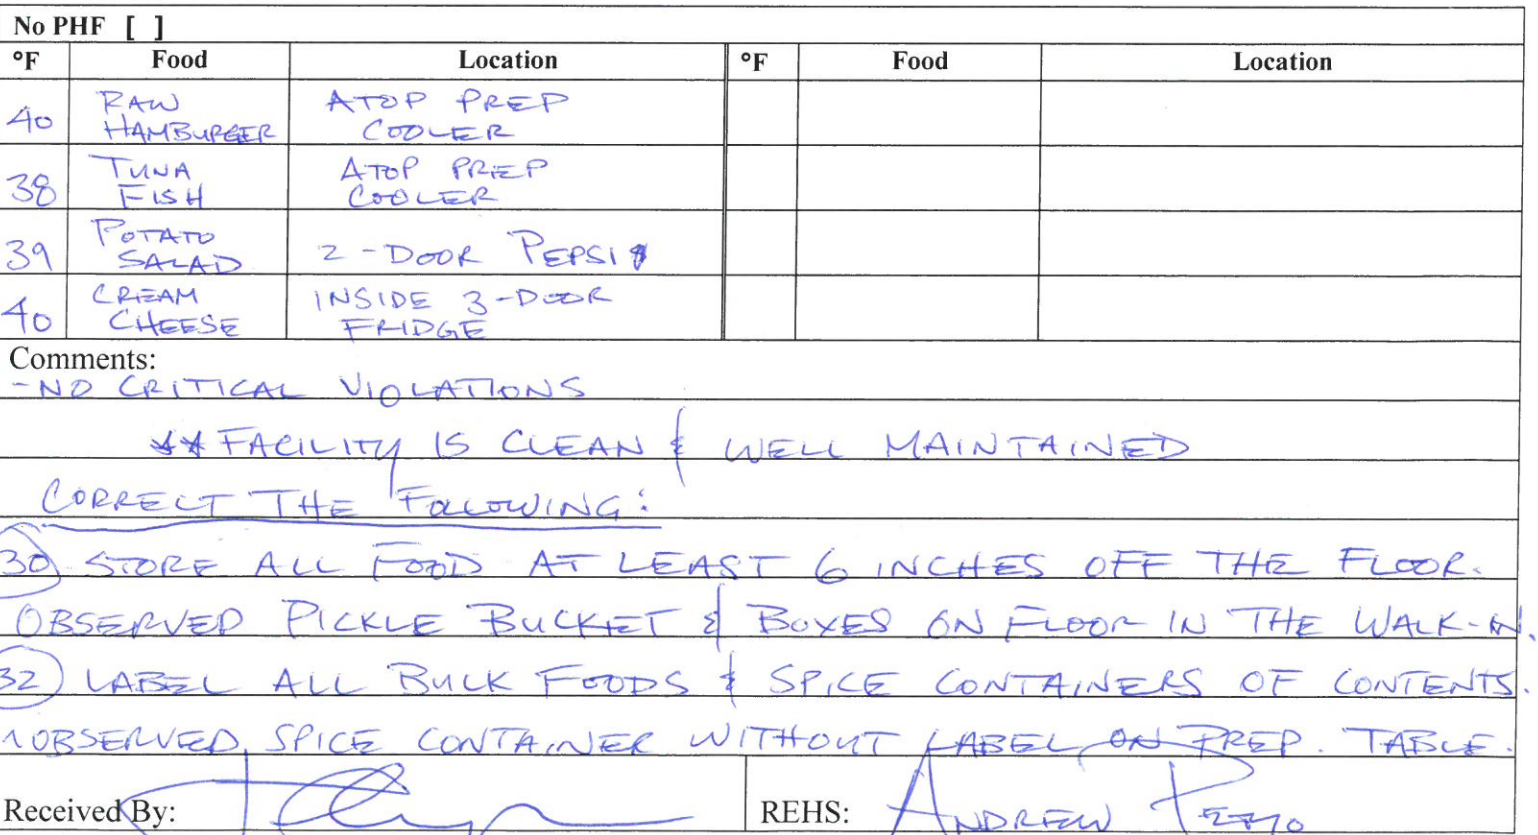 No PHF [ ]
°F Food Location °F Food Location
40 RAW HAMBURGER ATOP PREP COOLER
38 TUNA FISH ATOP PREP COOLER
39 POTATO SALAD 2-DOOR PEPSI
40 CREAM CHEESE INSIDE 3-DOOR FRIDGE
Comments:
-NO CRITICAL VIOLATIONS
** FACILITY IS CLEAN & WELL MAINTAINED
CORRECT THE FOLLOWING:
30) STORE ALL FOOD AT LEAST 6 INCHES OFF THE FLOOR.
OBSERVED PICKLE BUCKET & BOXES ON FLOOR IN THE WALK-IN.
32) LABEL ALL BULK FOODS & SPICE CONTAINERS OF CONTENTS.
OBSERVED SPICE CONTAINER WITHOUT LABEL ON PREP. TABLE.
Received By: REHS: ANDREW